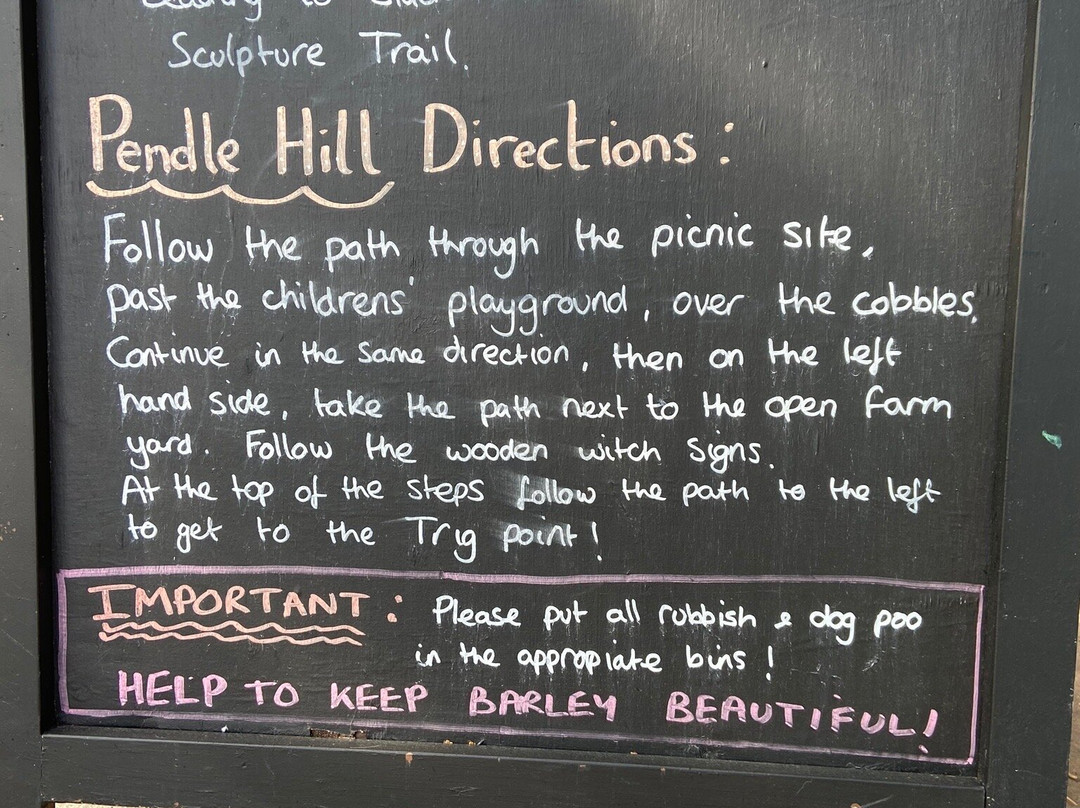 to
Sculpture Trail.
Pendle Hill Directions:
Follow the path through the picnic site,
past the childrens' playground, over the cobbles.
Continue in the same direction, then on the left
hand side, take the path next to the open farm
yard. Follow the wooden witch signs.
At the top of the steps follow the path to the left
to get to the Trig point!
IMPORTANT: Please put all rubbish & dog poo
in the appropiate bins!
HELP TO KEEP BARLEY BEAUTIFUL!